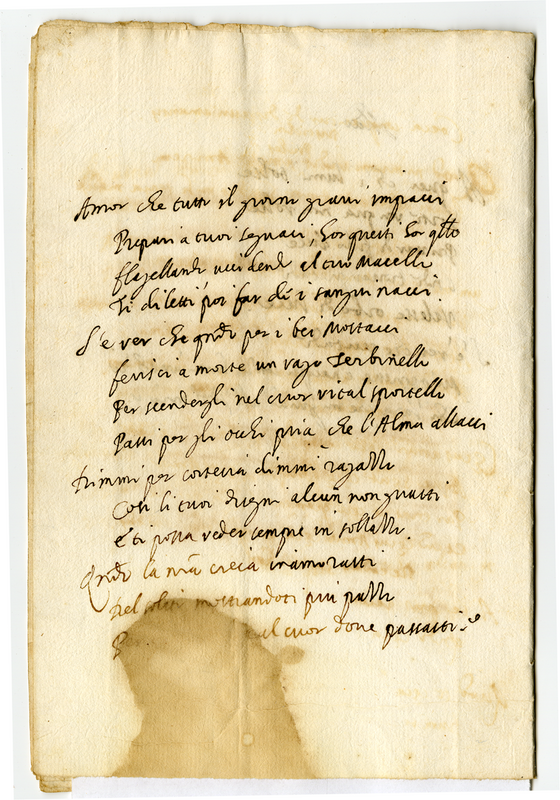 Amor che tutti il giorni gravi impacci
Prepari a tuoi seguaci, hor questi hor qllo
flagellando uccidendo al tuo Macello
Ti diletti poi far di i sanguinacci.
S'e ver che qndo per i bei Mostacci
ferisci a morte un vago Zerbinello
Per scendergli nel cuor vital sportello
Passi per gli occhi pria che l'Alma allacci
Dimmi per cortesia dimmi ragazzo
Così li tuoi disegni alcun non guasti
E ti possa veder sempre in sollazzo.
Qndo la mia inamorasti
Nel mostrandoti più pazzo
al cuor dove passasti